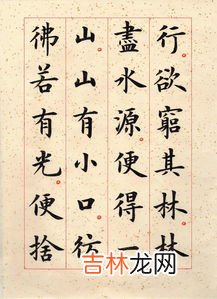 行欲窮其林林
盡水源便得一
山山有小口彷
彿若有光便捨
吉林龙网